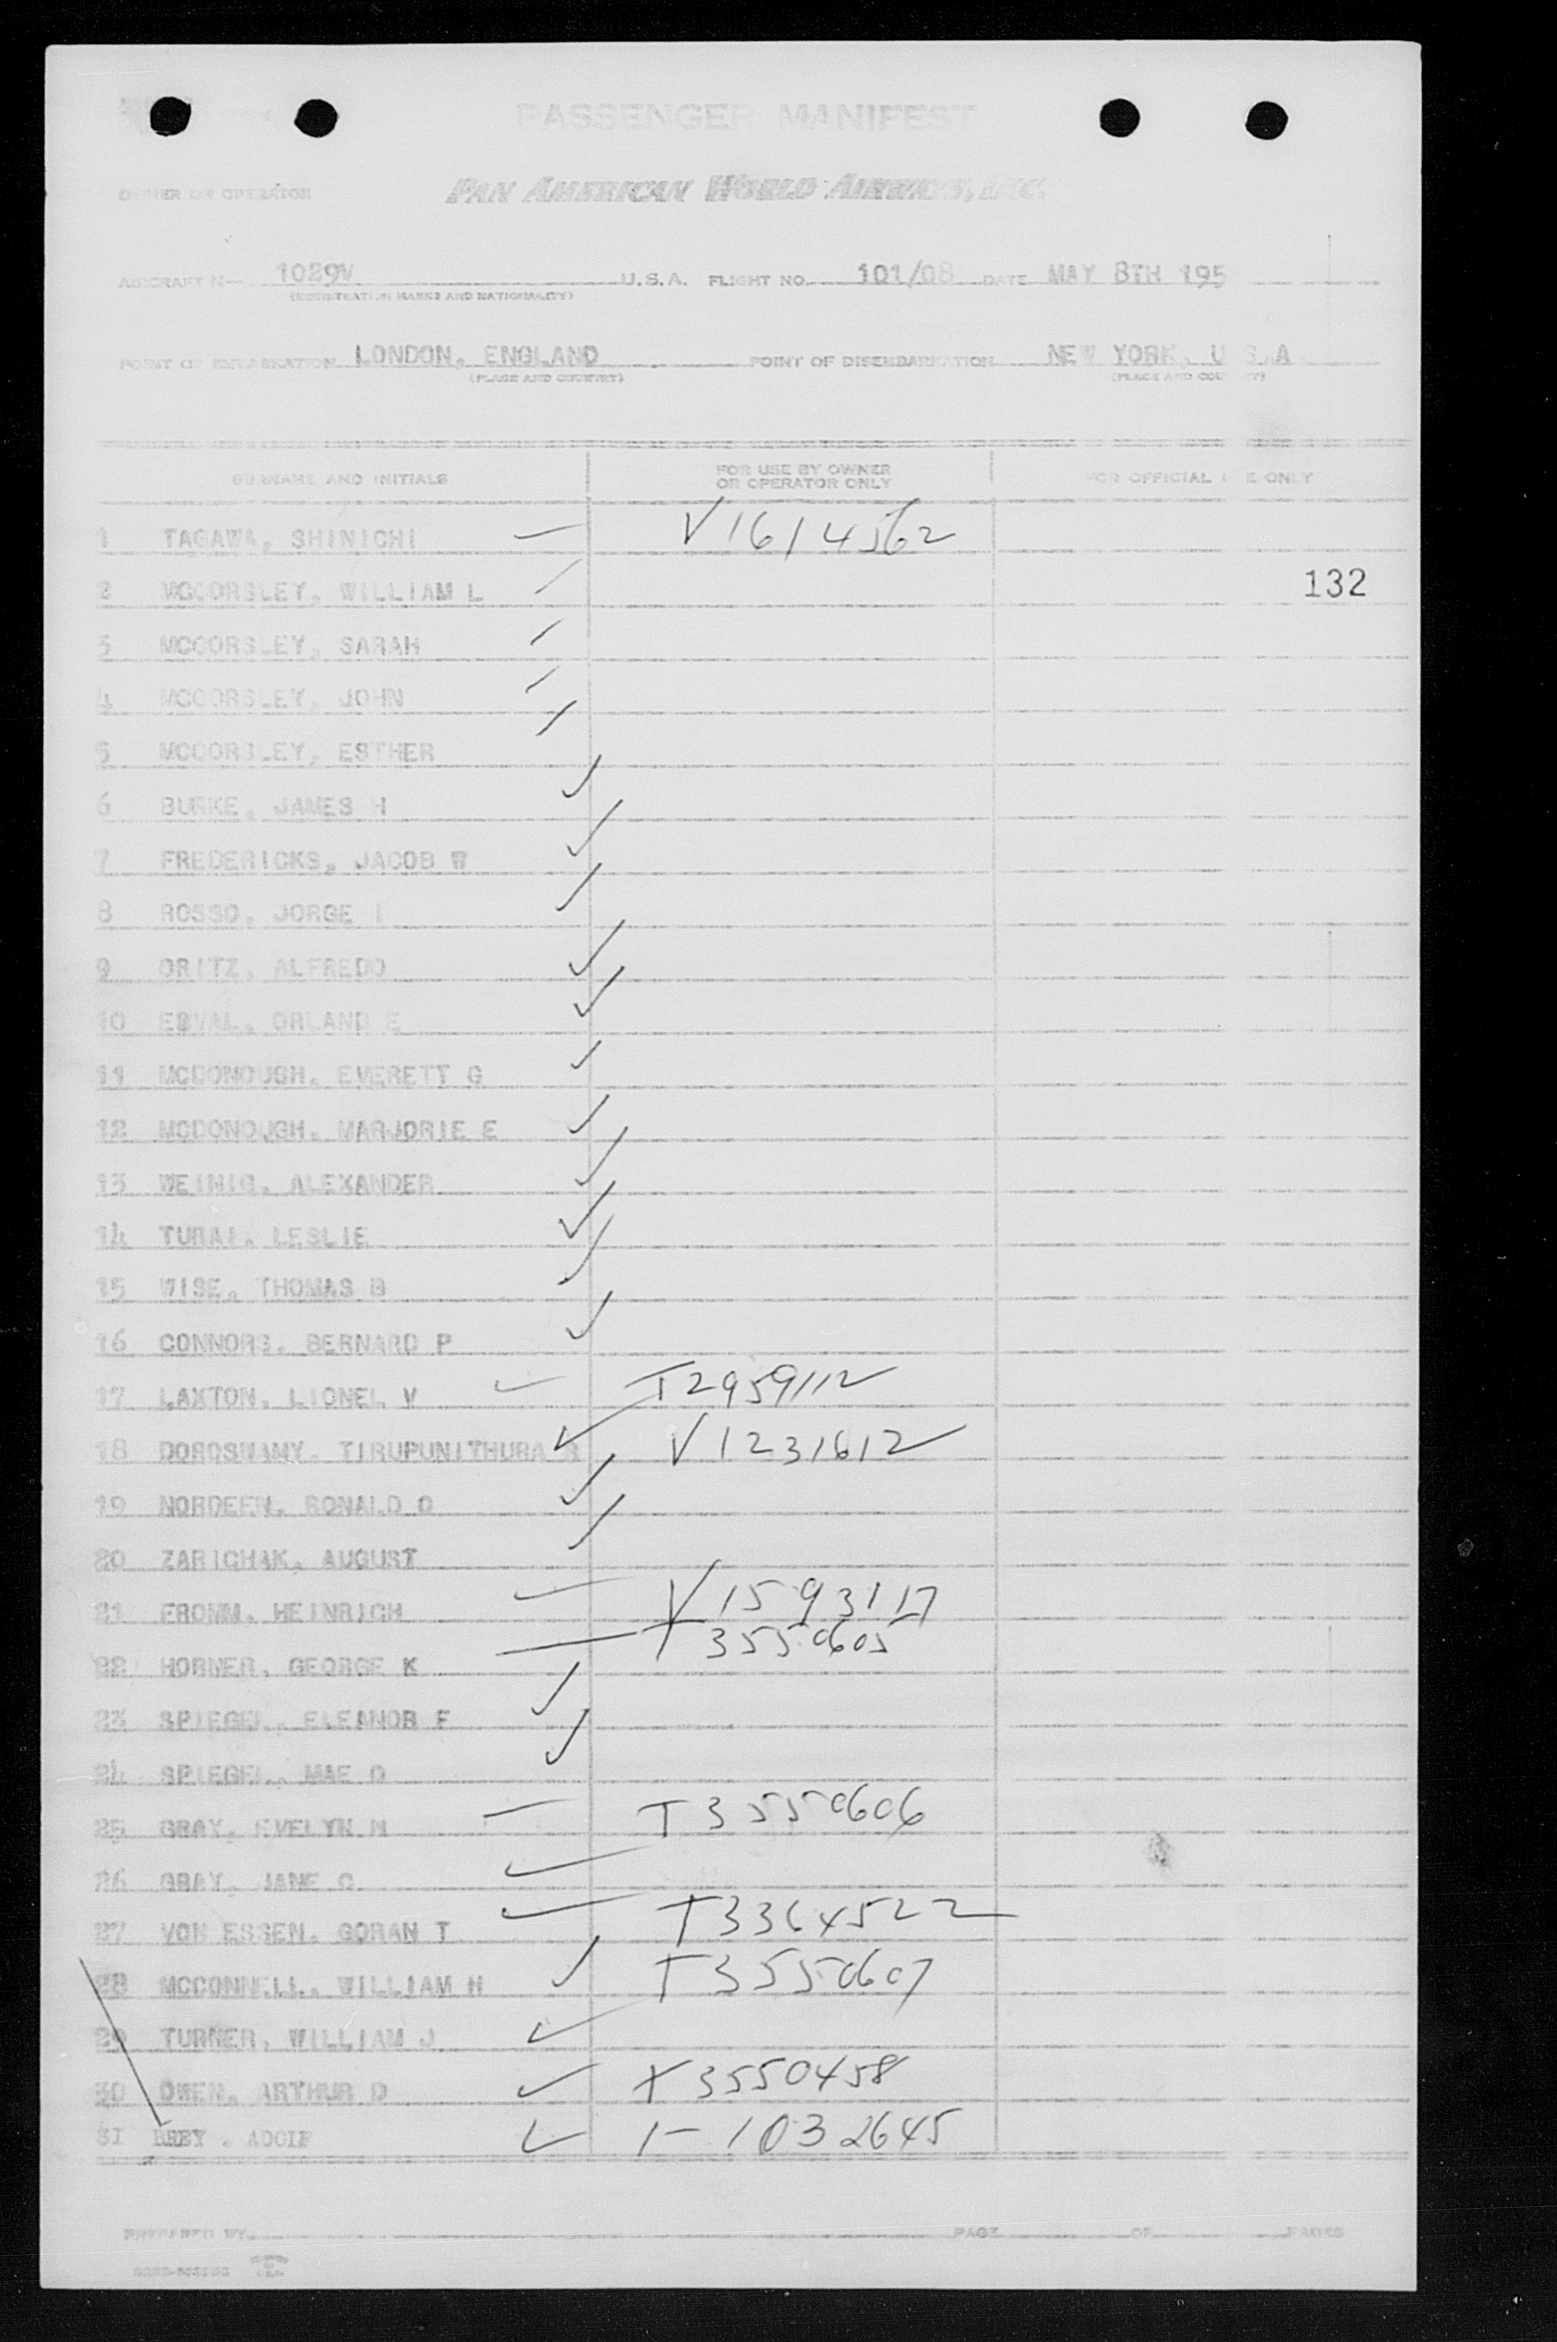 PASSENGER MANIFEST
OWNER OR OPERATOR PAN AMERICAN WORLD AIRWAYS, INC.
AIRCRAFT N— 1029V U.S.A. FLIGHT NO. 101/08 DATE MAY 8TH 195
(REGISTRATION MARKS AND NATIONALITY)
POINT OF EMBARKATION LONDON, ENGLAND POINT OF DISEMBARKATION NEW YORK, U.S.A
(PLACE AND COUNTRY) (PLACE AND COUNTRY)
SURNAME AND INITIALS FOR USE BY OWNER OR OPERATOR ONLY FOR OFFICIAL USE ONLY
1 TAGAWA, SHINICHI — V1614562
2 MCCORSLEY, WILLIAM L 132
3 MCCORSLEY, SARAH
4 MCCORSLEY, JOHN
5 MCCORSLEY, ESTHER
6 BURKE, JAMES H
7 FREDERICKS, JACOB W
8 ROSSO, JORGE I
9 ORITZ, ALFREDO
10 ORLAND E
11 MCDONOUGH, EVERETT G
12 MCDONOUGH, MARJORIE E
13 WEINIG, ALEXANDER
14 TURAI, LESLIE
15 WISE, THOMAS B
16 CONNORS, BERNARD P
17 LAXTON, LIONEL V T2959112
18 DOROSWAMY, TIRUPUNITHURA R V1231612
19 NORDEEN, RONALD O
20 ZARICHAK, AUGUST
21 FROMM, HEINRICH V1593117
22 HORNER, GEORGE K — T3550605
23 SPIEGEL, ELEANOR F
24 SPIEGEL, MAE D
25 GRAY, EVELYN M — T3550606
26 GRAY, JANE C
27 VON ESSEN, GORAN T T3364522
28 MCCONNELL, WILLIAM H T3550607
29 TURNER, WILLIAM J
30 OWEN, ARTHUR D T3550458
31 ADOLF 1-1032645
PREPARED BY PAGE OF PAGES